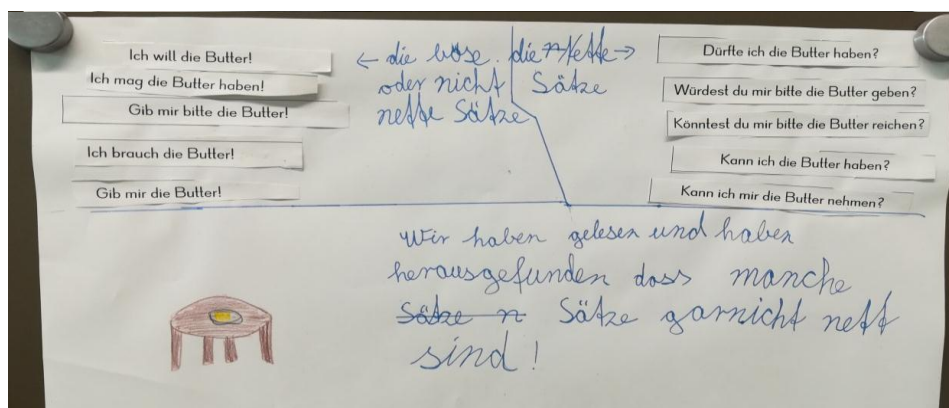 Ich will die Butter!
Ich mag die Butter haben!
Gib mir bitte die Butter!
Ich brauch die Butter!
Gib mir die Butter!
← die böse
oder nicht
nette Sätze
die nette →
Sätze
Dürfte ich die Butter haben?
Würdest du mir bitte die Butter geben?
Könntest du mir bitte die Butter reichen?
Kann ich die Butter haben?
Kann ich mir die Butter nehmen?
Wir haben gelesen und haben
herausgefunden dass manche
Sätze n Sätze garnicht nett
sind!